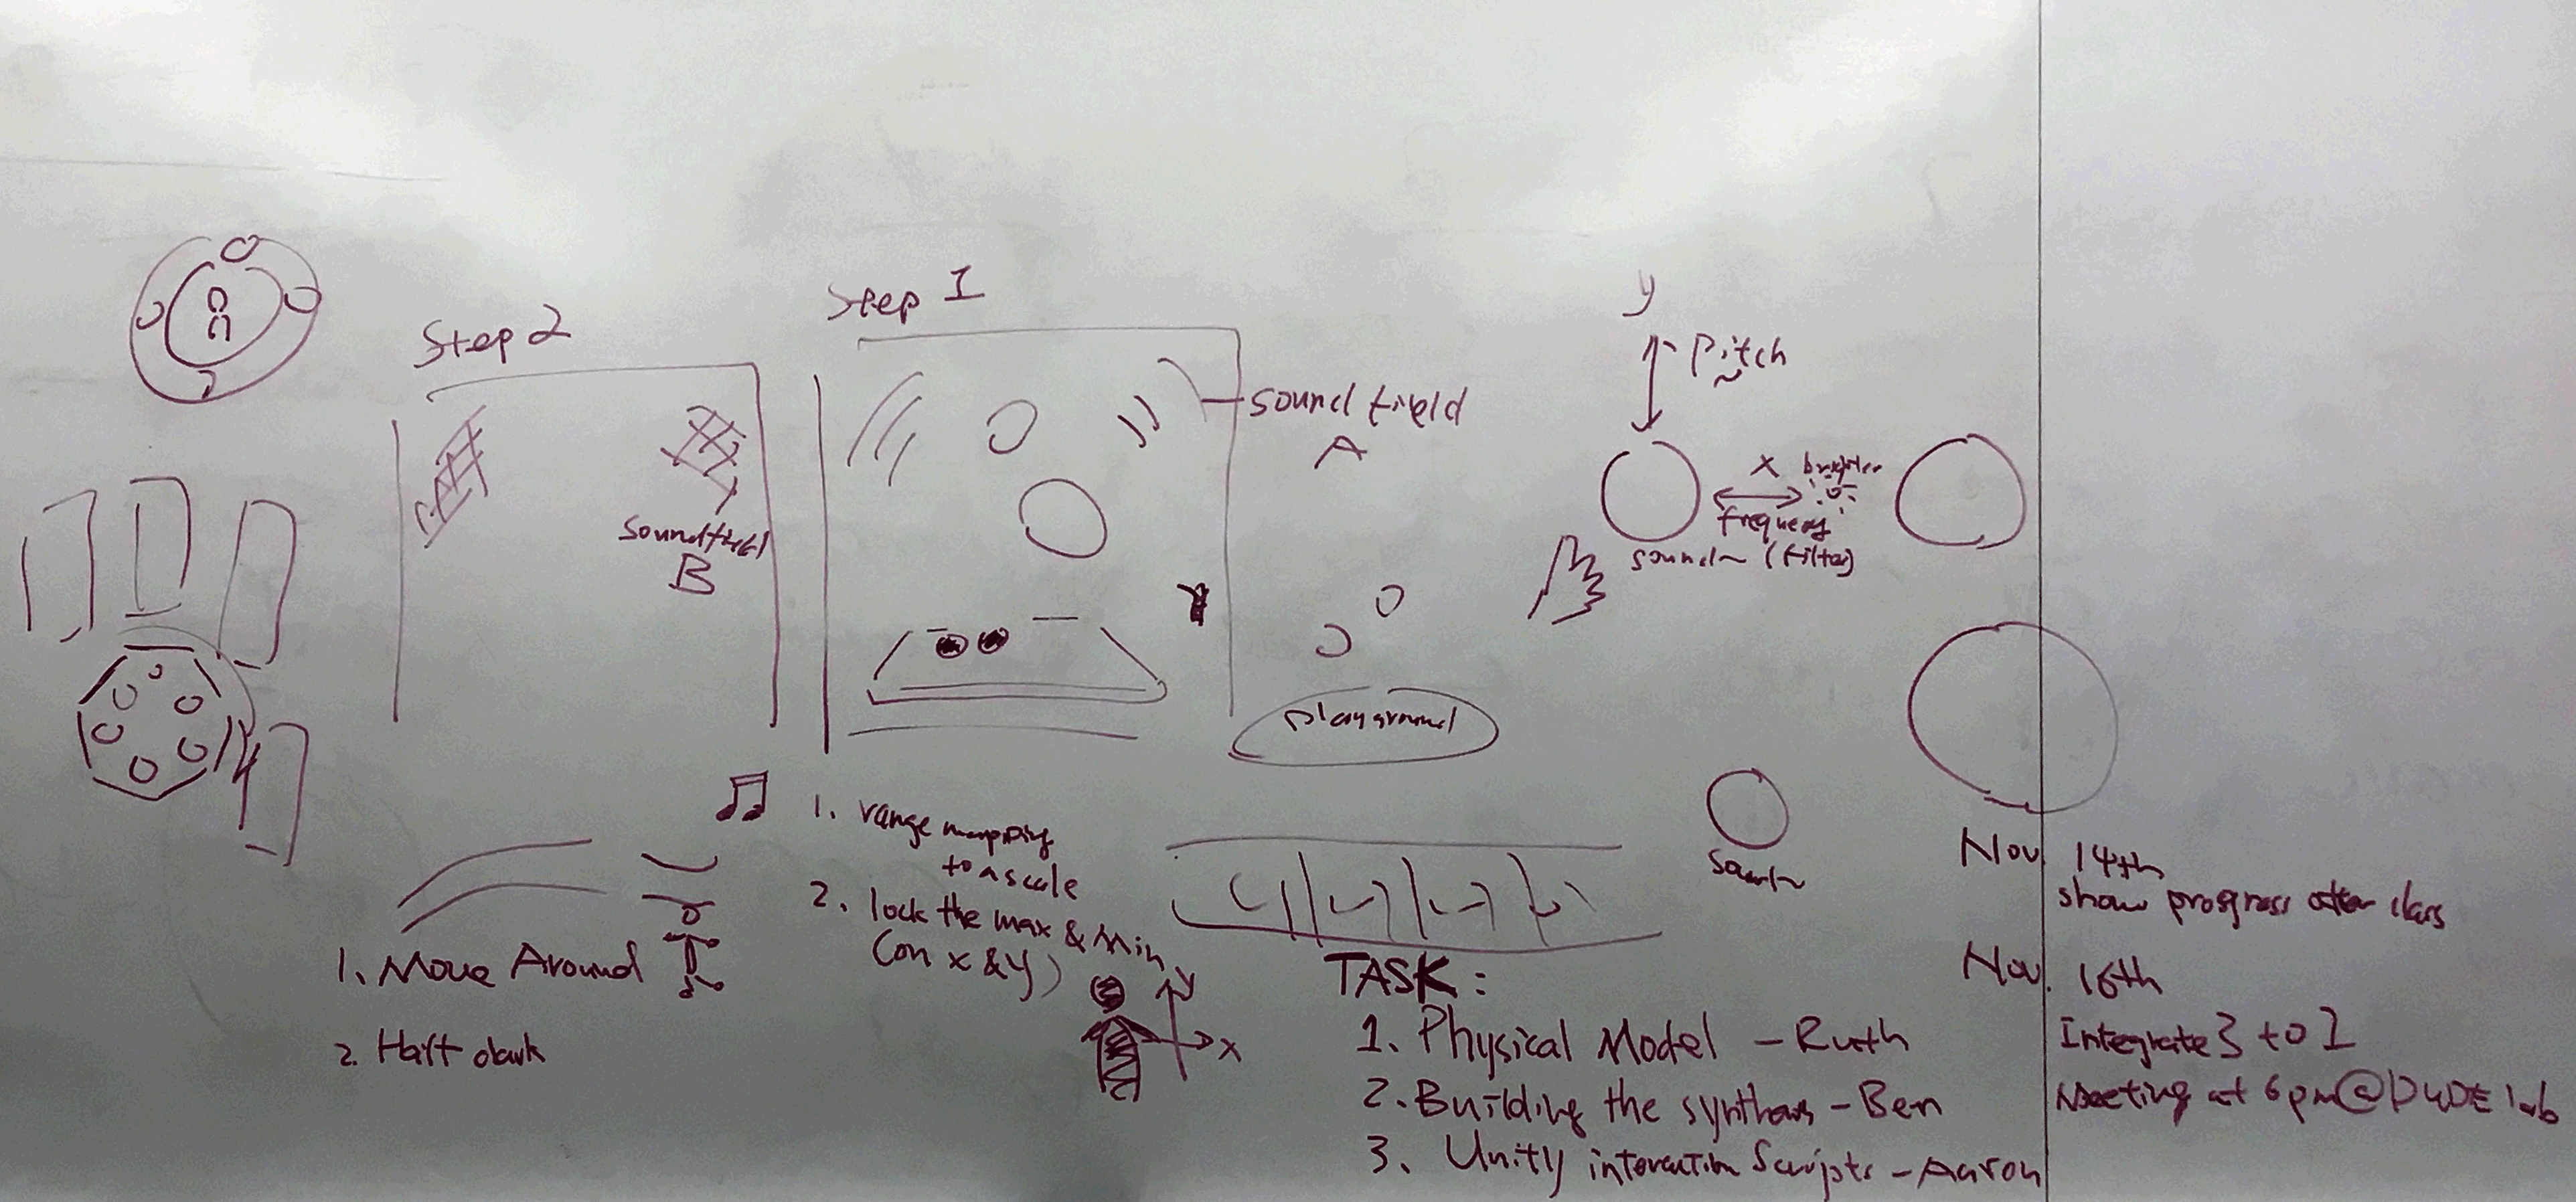 Step 2
Soundfield
B
Step 1
Sound field
A
playground
y
Pitch
x brighter
frequency
sound~ (filter)
sound~
1. range mapping
to a scale
2. lock the max & Min
(on x & y)
y
x
1. Move Around
2. Half dark
TASK:
1. Physical Model - Ruth
2. Building the synthans - Ben
3. Unity interaction Scripts - Aaron
Nov. 14th
show progress after class
Nov. 16th
Integrate 3 to 1
Meeting at 6pm@ lab